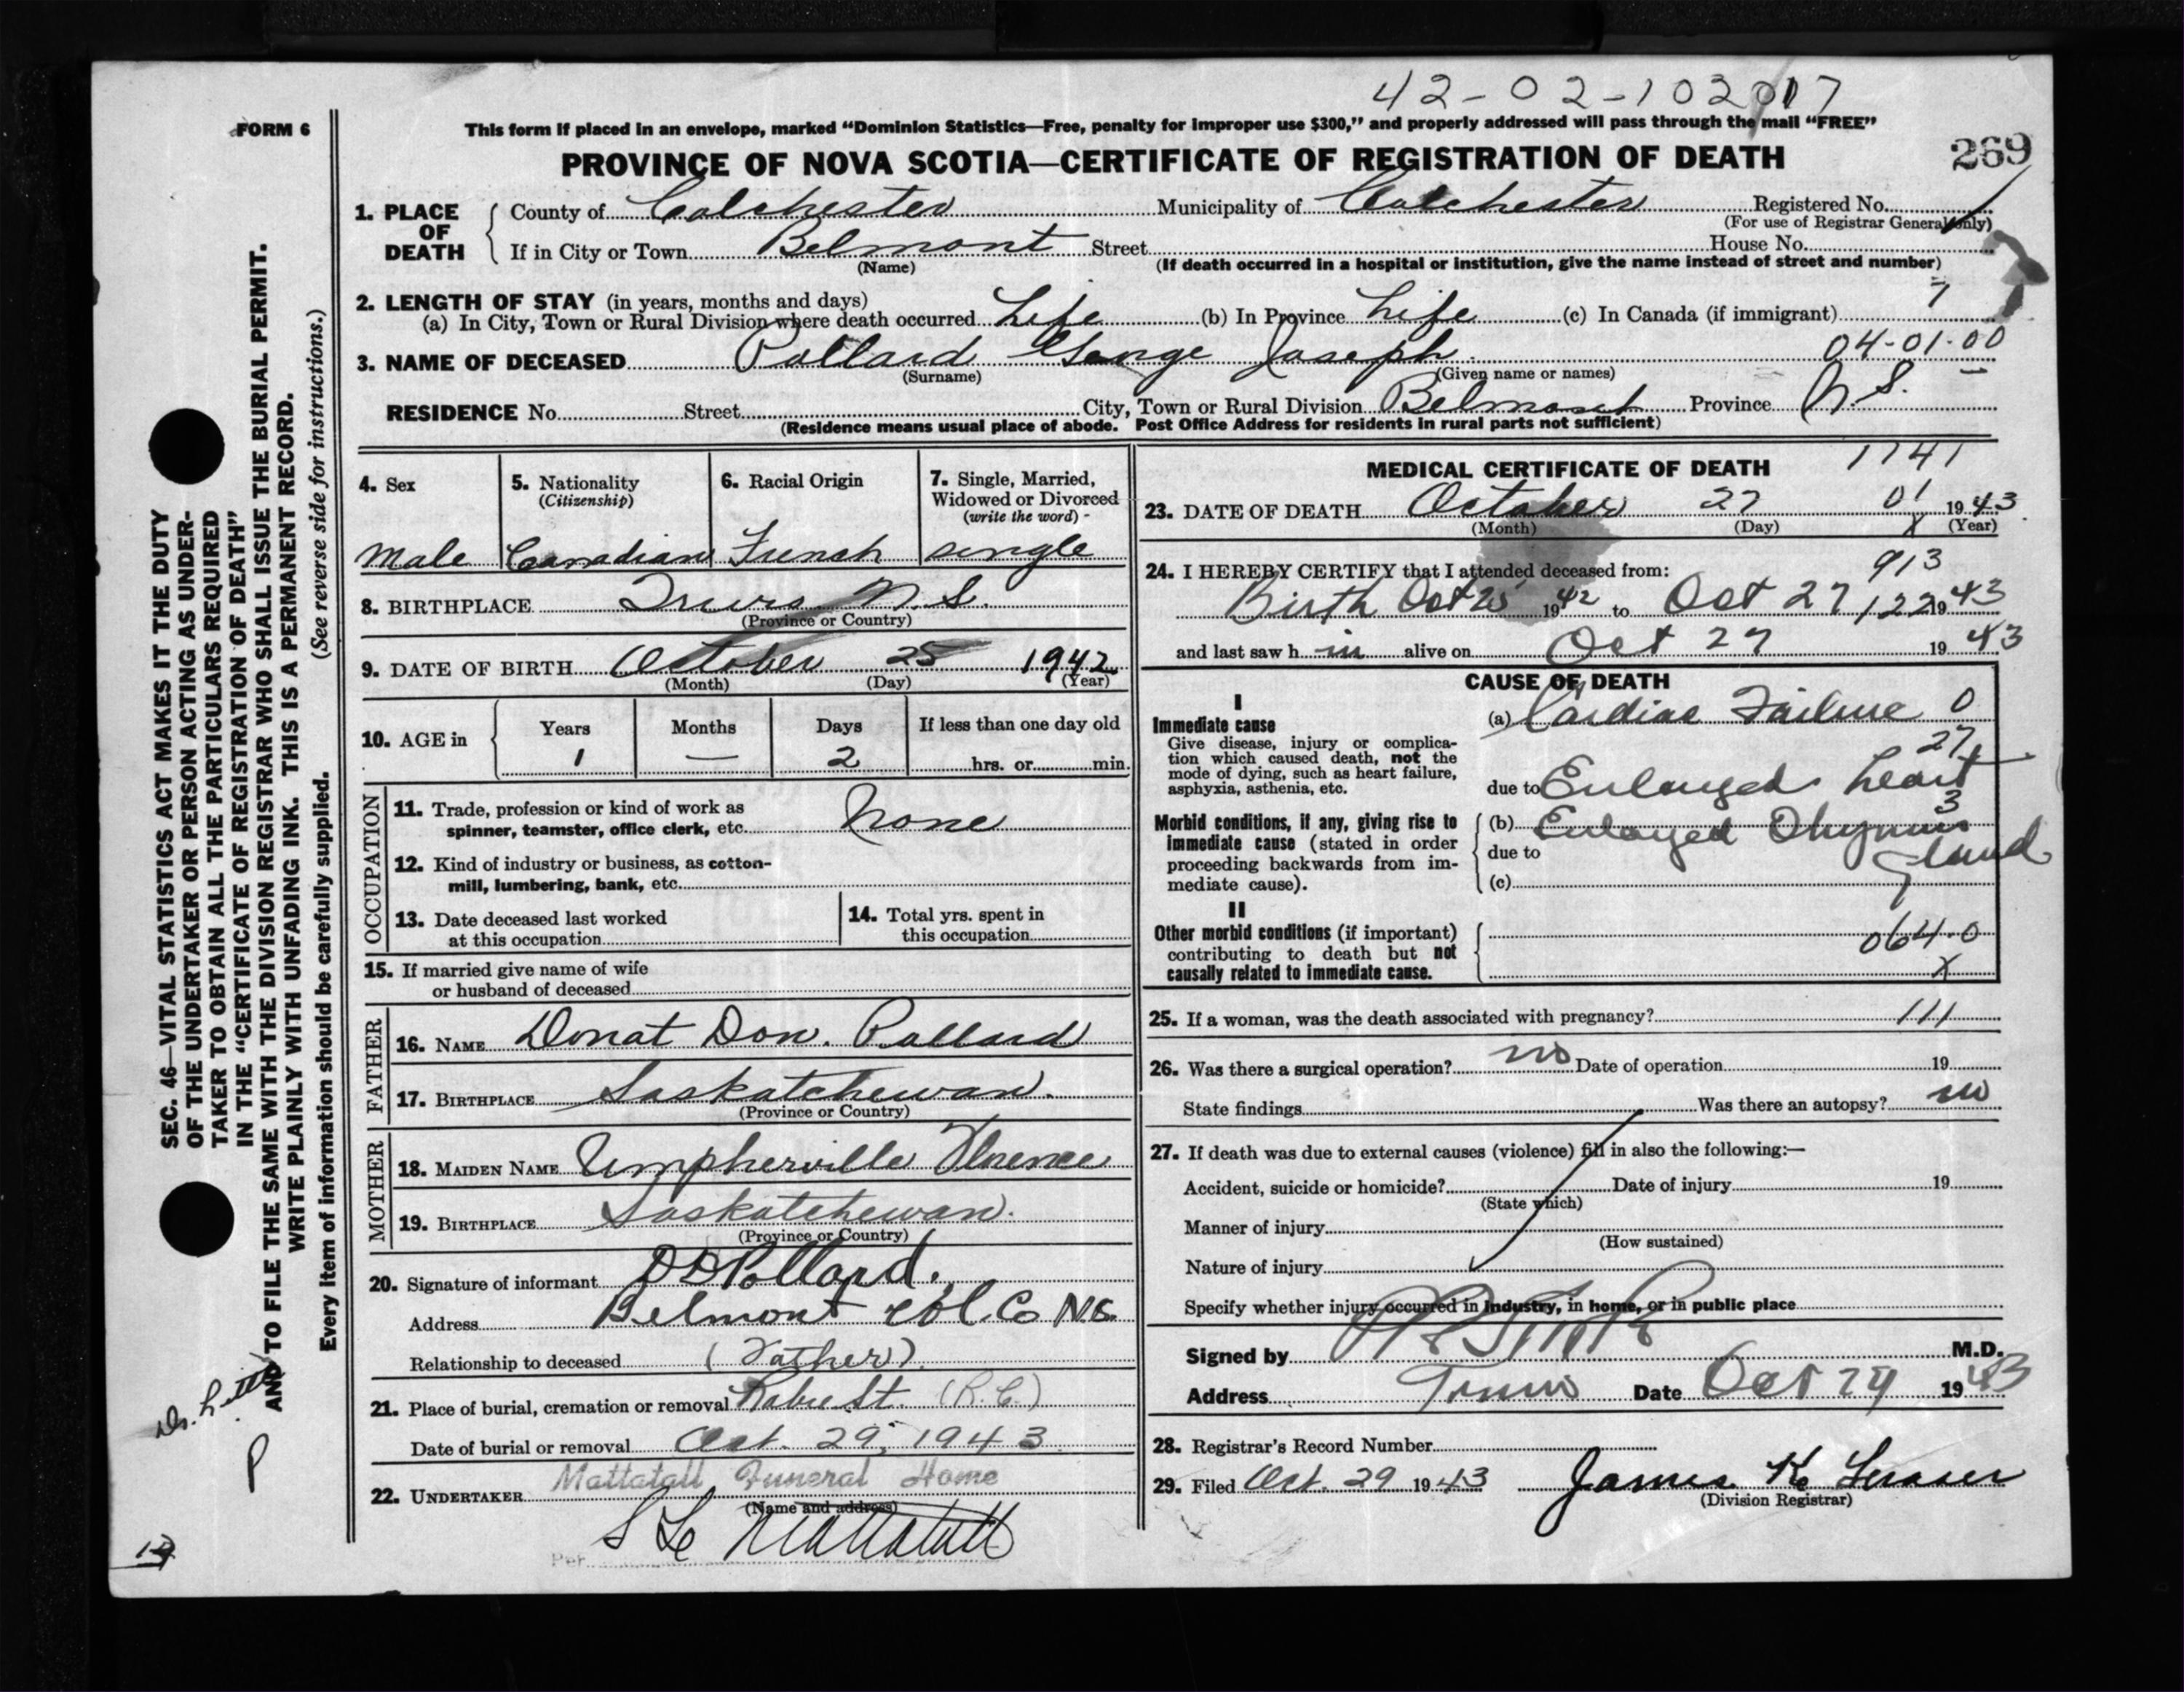 42-02-102017
FORM 6
This form if placed in an envelope, marked “Dominion Statistics—Free, penalty for improper use $300,” and properly addressed will pass through the mail “FREE”
PROVINCE OF NOVA SCOTIA—CERTIFICATE OF REGISTRATION OF DEATH
269
1. PLACE OF DEATH
County of Colchester Municipality of Colchester Registered No.
(For use of Registrar General only)
If in City or Town Belmont Street House No.
(Name) (If death occurred in a hospital or institution, give the name instead of street and number)
2. LENGTH OF STAY (in years, months and days)
7
(a) In City, Town or Rural Division where death occurred Life (b) In Province Life (c) In Canada (if immigrant)
3. NAME OF DECEASED Pollard George Joseph. 04-01-00
(Surname) (Given name or names)
RESIDENCE No. Street City, Town or Rural Division Belmont Province N.S.
(Residence means usual place of abode. Post Office Address for residents in rural parts not sufficient)
4. Sex
Male
5. Nationality
(Citizenship)
Canadian
6. Racial Origin
French
7. Single, Married,
Widowed or Divorced
(write the word)
single
8. BIRTHPLACE Truro N.S.
(Province or Country)
9. DATE OF BIRTH October 25 1942
(Month) (Day) (Year)
10. AGE in
Years Months Days If less than one day old
1 — 2 hrs. or min.
OCCUPATION
11. Trade, profession or kind of work as
spinner, teamster, office clerk, etc. None
12. Kind of industry or business, as cotton-
mill, lumbering, bank, etc.
13. Date deceased last worked
at this occupation
14. Total yrs. spent in
this occupation
15. If married give name of wife
or husband of deceased
FATHER
16. NAME Donat Don. Pollard
17. BIRTHPLACE Saskatchewan.
(Province or Country)
MOTHER
18. MAIDEN NAME Umpherville Florence
19. BIRTHPLACE Saskatchewan.
(Province or Country)
20. Signature of informant D D Pollard.
Address Belmont Col. Co NS
Relationship to deceased (Father)
21. Place of burial, cremation or removal St. (R.C.)
Date of burial or removal Oct. 29, 1943
22. UNDERTAKER Mattatall Funeral Home
(Name and address)
Per Mattatall
1741
MEDICAL CERTIFICATE OF DEATH
01
23. DATE OF DEATH October 27 1943
(Month) (Day) X (Year)
913
24. I HEREBY CERTIFY that I attended deceased from:
Birth Oct 25 1942 to Oct 27 122 1943
and last saw h im alive on Oct 27 1943
CAUSE OF DEATH
I
Immediate cause
Give disease, injury or complica-
tion which caused death, not the
mode of dying, such as heart failure,
asphyxia, asthenia, etc.
(a) Cardiac Failure 0
27
due to Enlarged heart
3
Morbid conditions, if any, giving rise to
immediate cause (stated in order
proceeding backwards from im-
mediate cause).
(b) Enlarged Thymus
due to gland
(c)
II
Other morbid conditions (if important)
contributing to death but not
causally related to immediate cause.
064.0
X
25. If a woman, was the death associated with pregnancy? 111
26. Was there a surgical operation? no Date of operation 19
State findings Was there an autopsy? no
27. If death was due to external causes (violence) fill in also the following:—
Accident, suicide or homicide? Date of injury 19
(State which)
Manner of injury
(How sustained)
Nature of injury
Specify whether injury occurred in industry, in home, or in public place
Signed by M.D.
Address Truro Date Oct 29 1943
28. Registrar's Record Number
29. Filed Oct. 29 1943 James K Fraser
(Division Registrar)
SEC. 46—VITAL STATISTICS ACT MAKES IT THE DUTY
OF THE UNDERTAKER OR PERSON ACTING AS UNDER-
TAKER TO OBTAIN ALL THE PARTICULARS REQUIRED
IN THE “CERTIFICATE OF REGISTRATION OF DEATH”
AND TO FILE THE SAME WITH THE DIVISION REGISTRAR WHO SHALL ISSUE THE BURIAL PERMIT.
WRITE PLAINLY WITH UNFADING INK. THIS IS A PERMANENT RECORD.
(See reverse side for instructions.)
Every item of information should be carefully supplied.
P